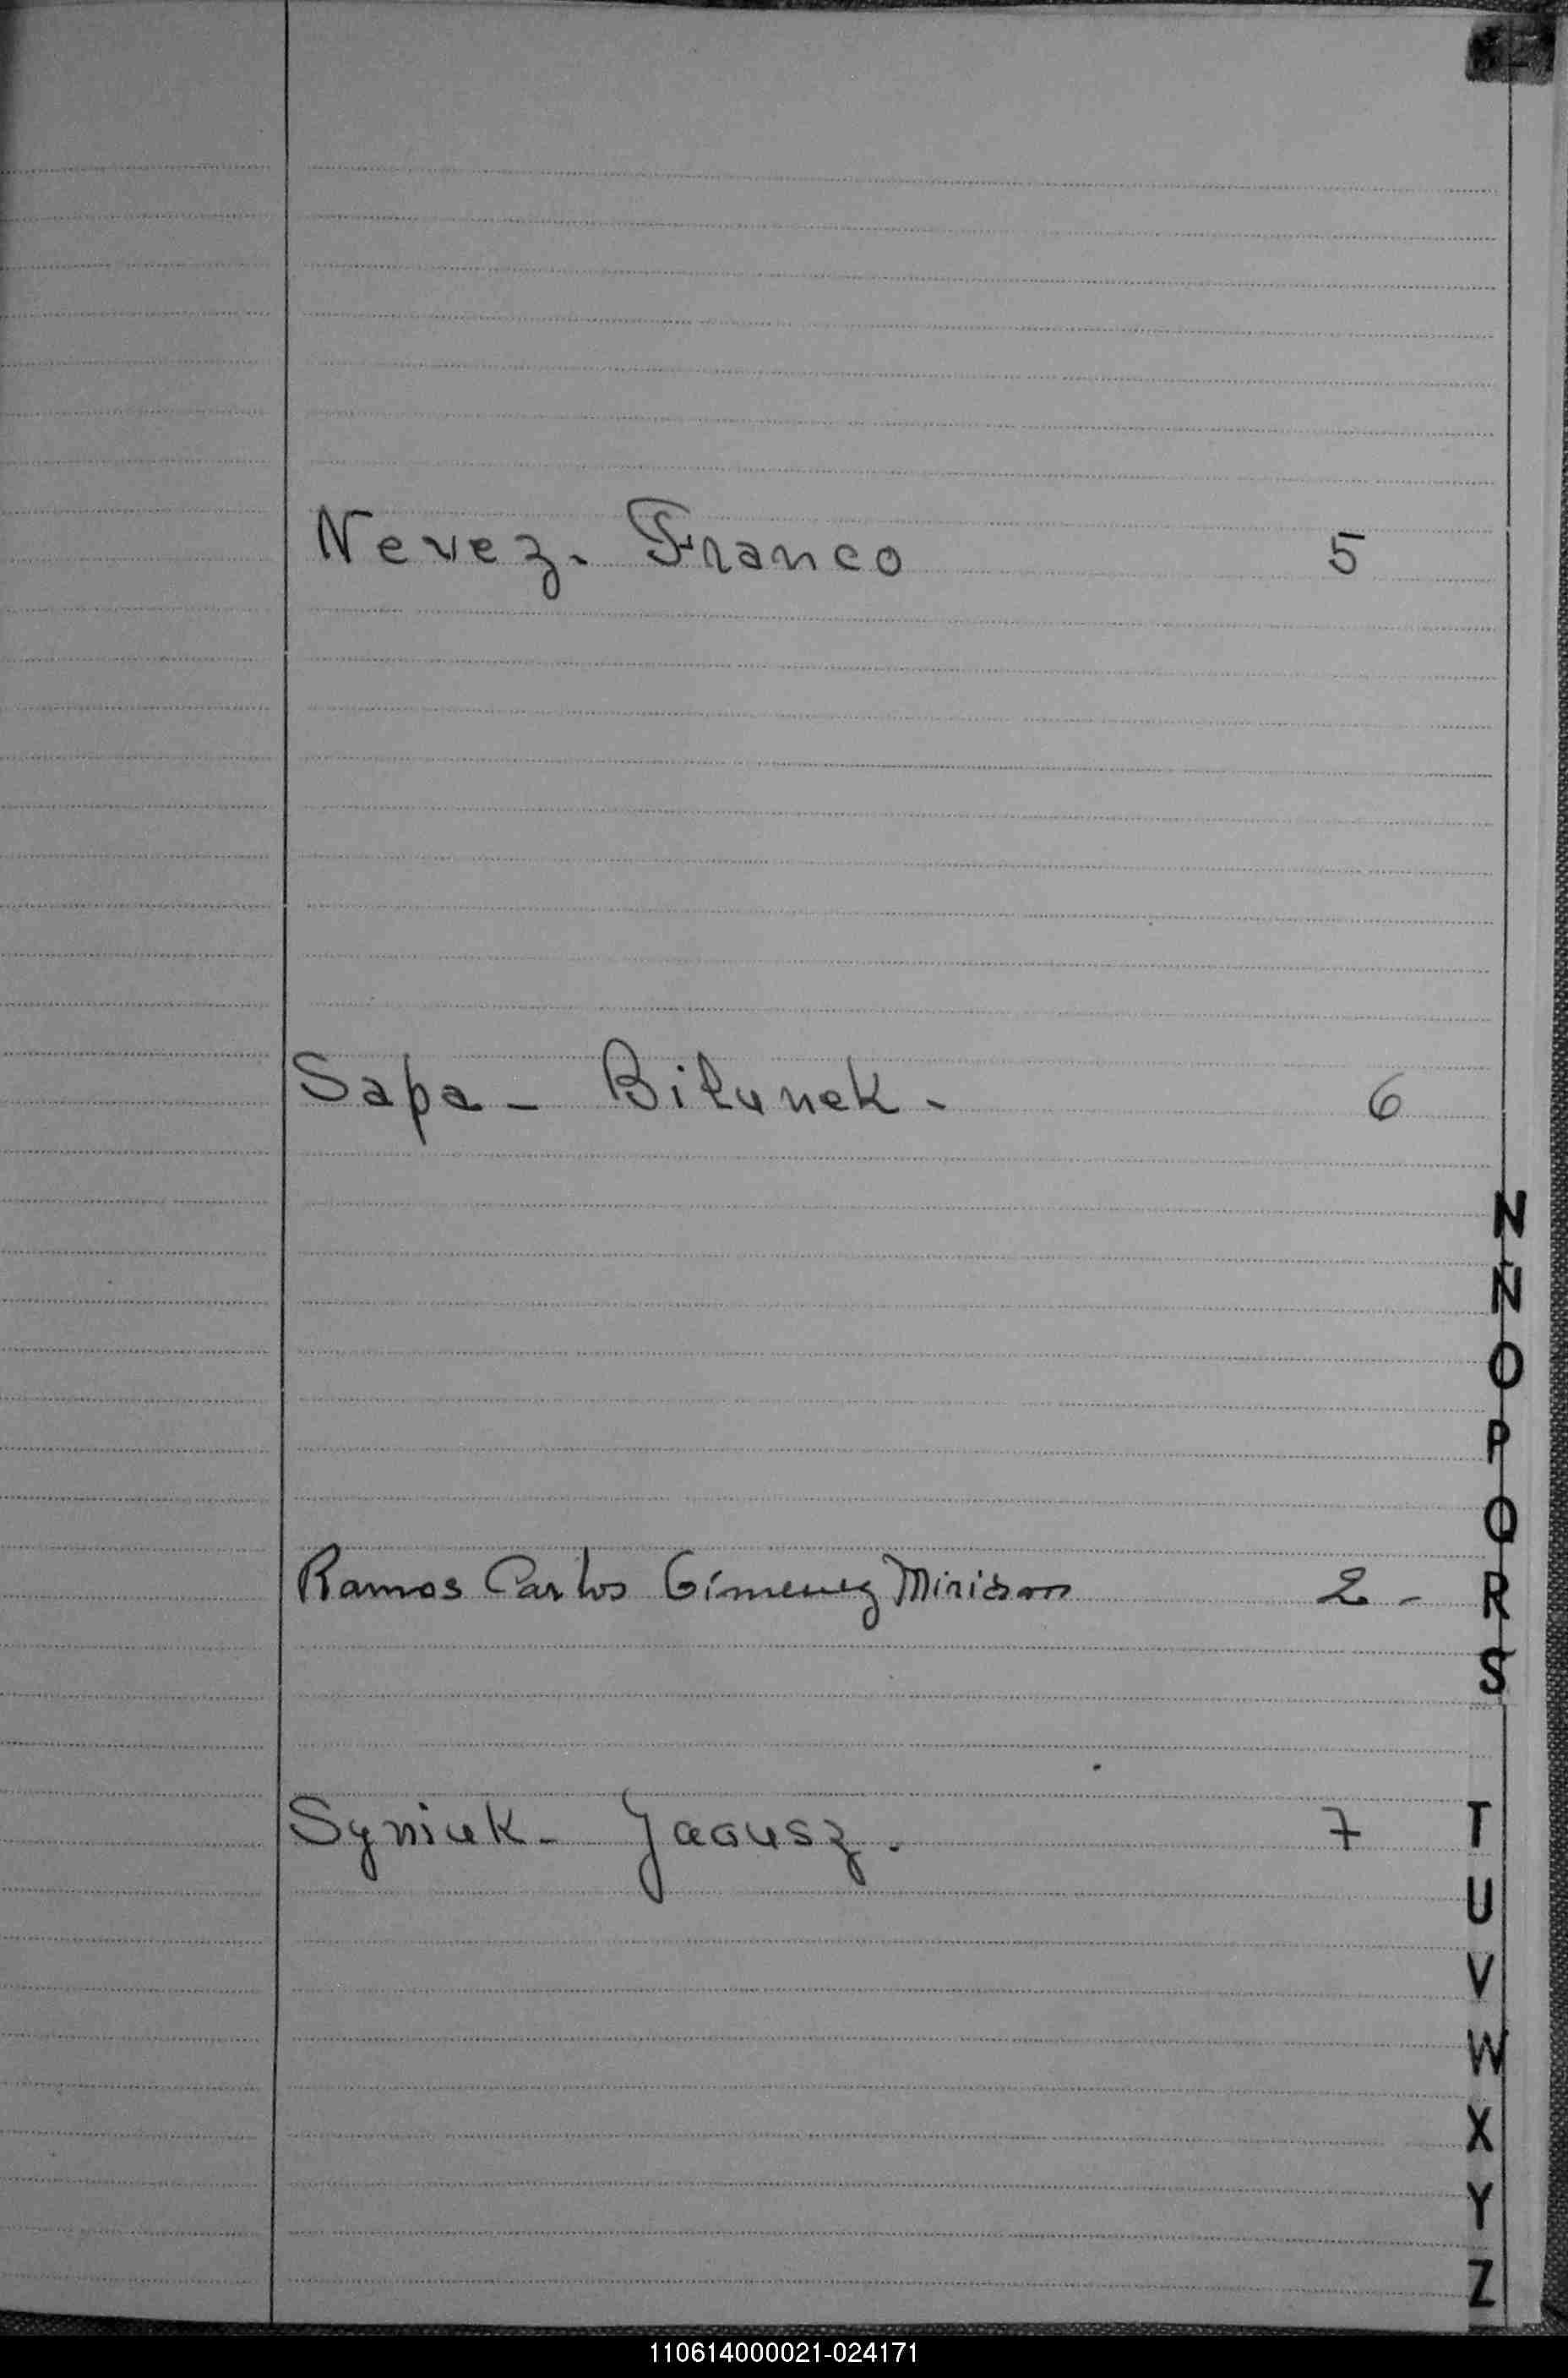 Nevez. Franco 5
Sapa - Bilunek. 6
N
Ñ
O
P
Q
Ramos Carlos Gimenez Miriam 2 - R
S
Syniuk - 7 T
U
V
W
X
Y
Z
110614000021-024171